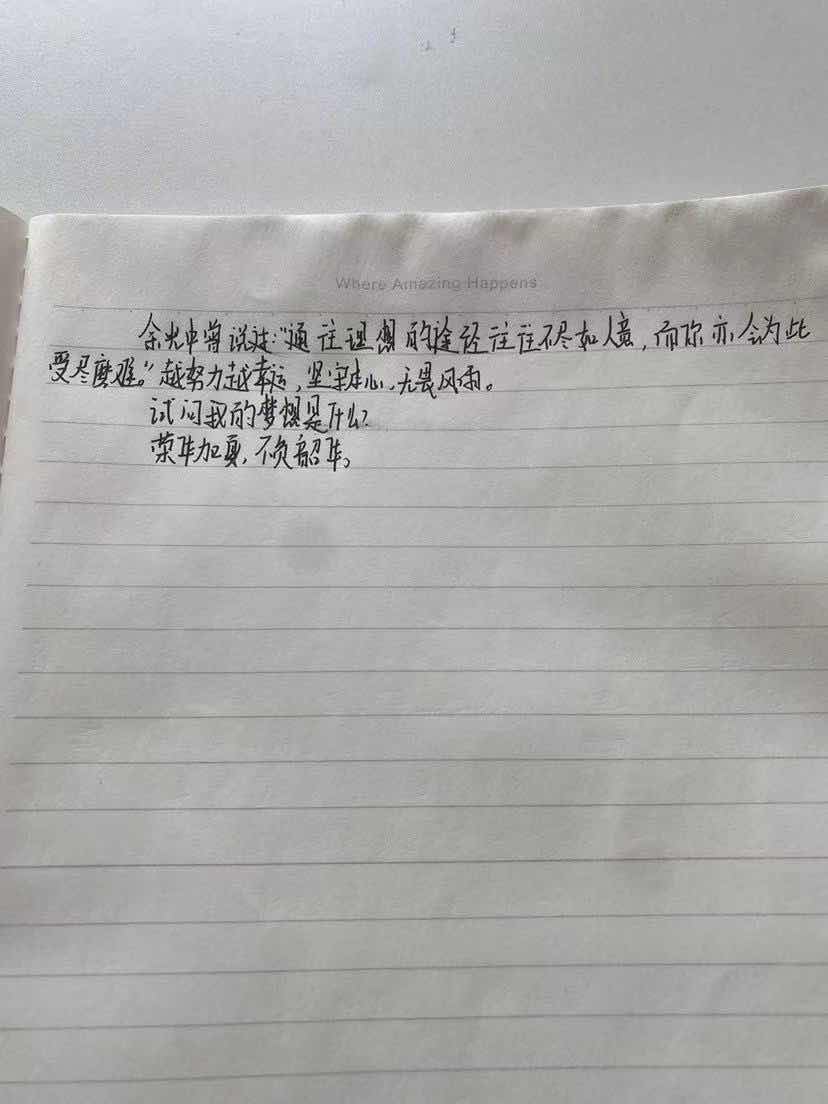 Where Amazing Happens
余光中曾说过:“通往理想的途径往往不尽如人意,而你亦会为此
受尽磨难。”越努力越幸运,坚守本心,无畏风雨。
试问我的梦想是什么?
荣华加冕,不负韶华。